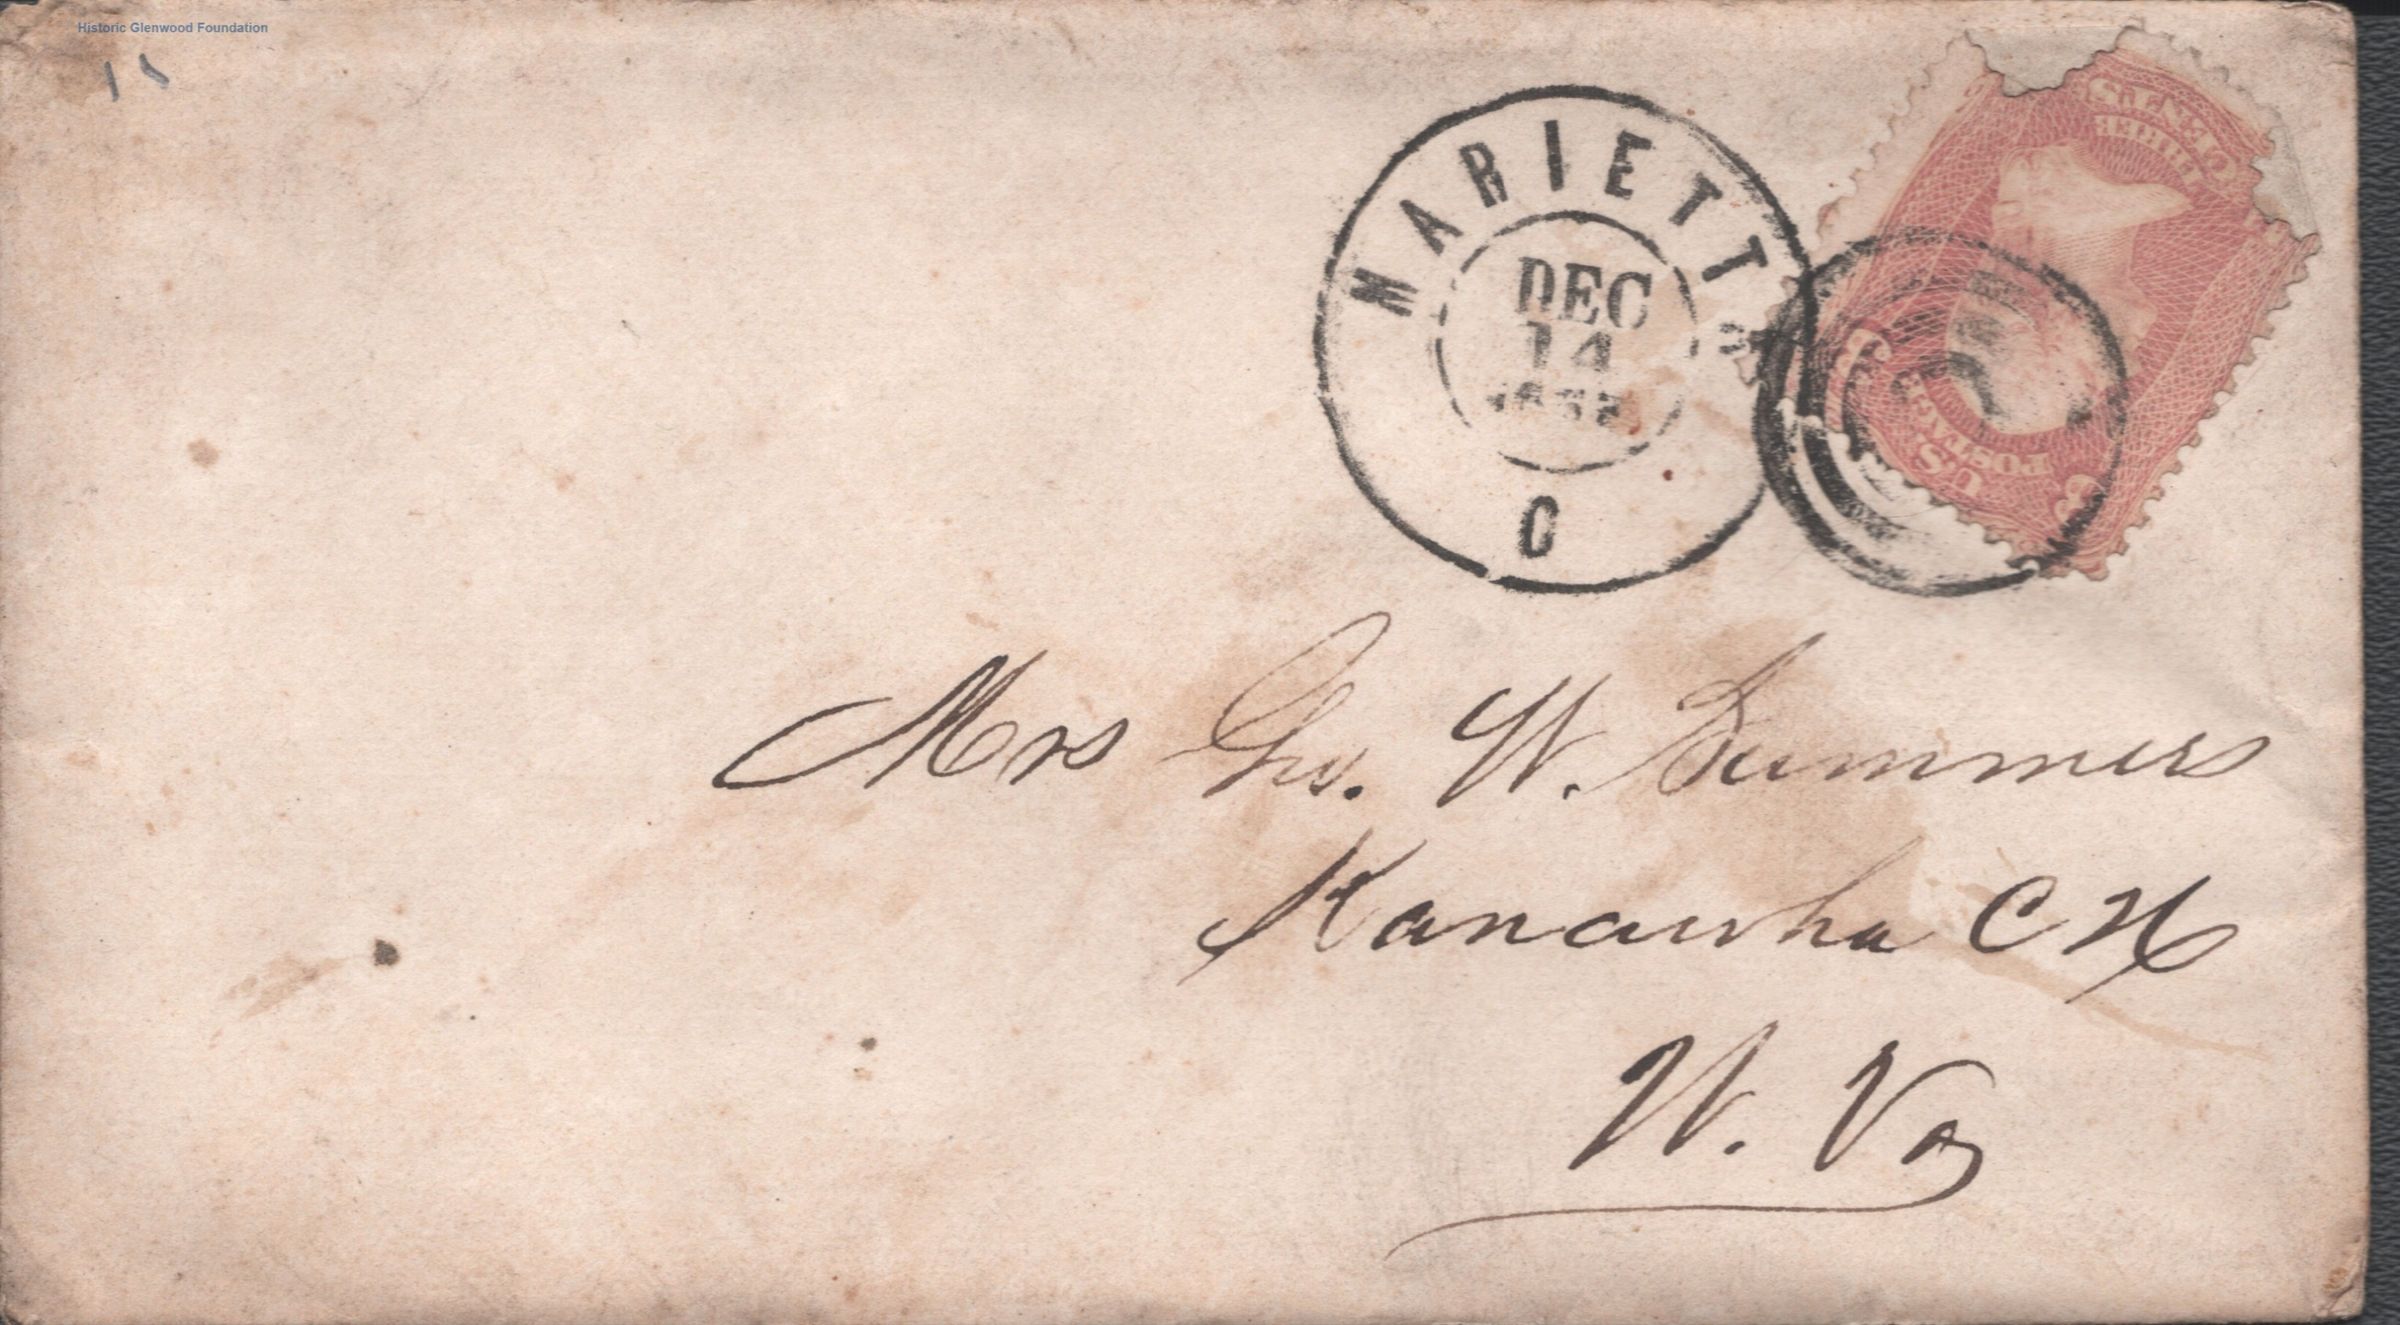 Historic Glenwood Foundation
MARIETTA
DEC
14
O
THREE CENTS
U.S. POSTAGE
3 3
Mrs Geo. W. Summers
Kanawha C H
W. Va